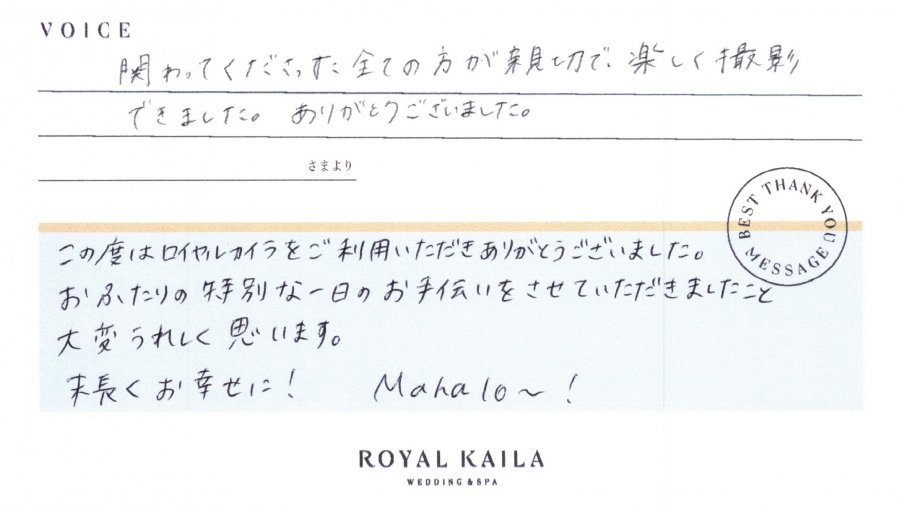 VOICE
関わってくださった全ての方が親切で、楽しく撮影
できました。 ありがとうございました。
さまより
BEST THANK YOU MESSAGE
この度はロイヤルカイラをご利用いただきありがとうございました。
おふたりの特別な一日のお手伝いをさせていただきましたこと
大変うれしく思います。
末長くお幸せに! Mahalo〜!
ROYAL KAILA
WEDDING & SPA